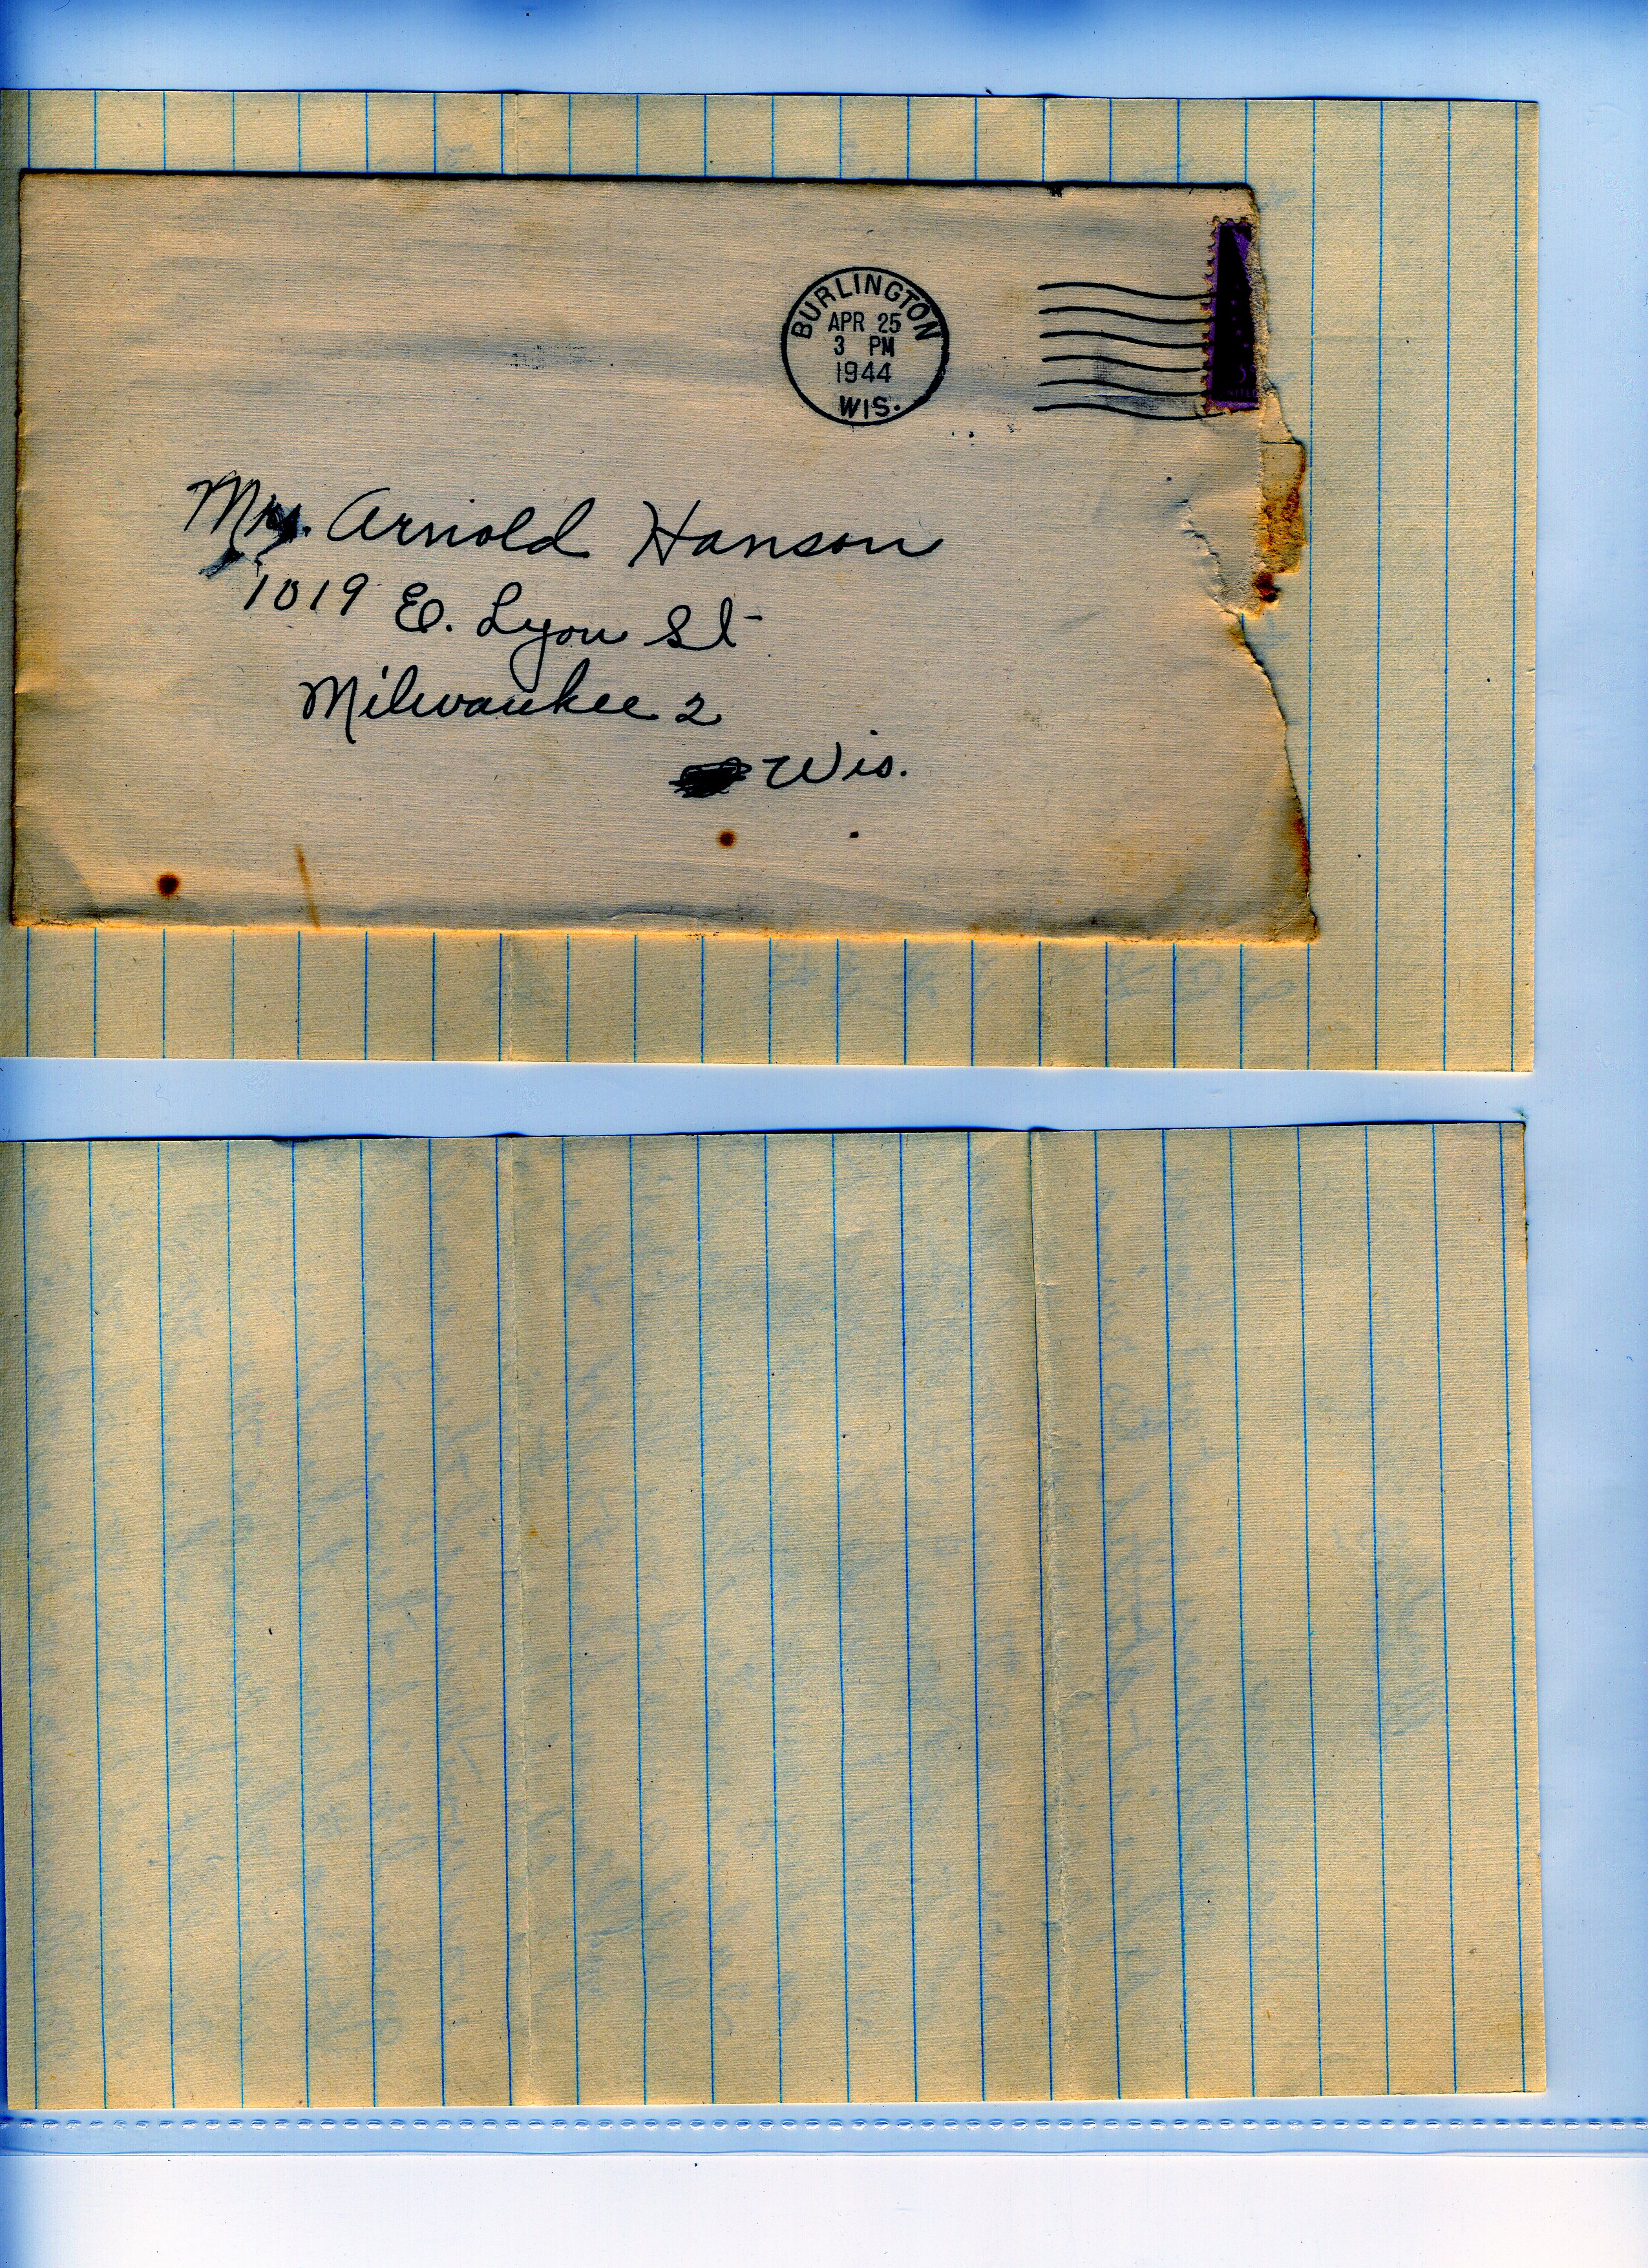 BURLINGTON
APR 25
3 PM
1944
WIS.
Mrs. Arnold Hanson
1019 E. Lyon St
Milwaukee 2
Wis.